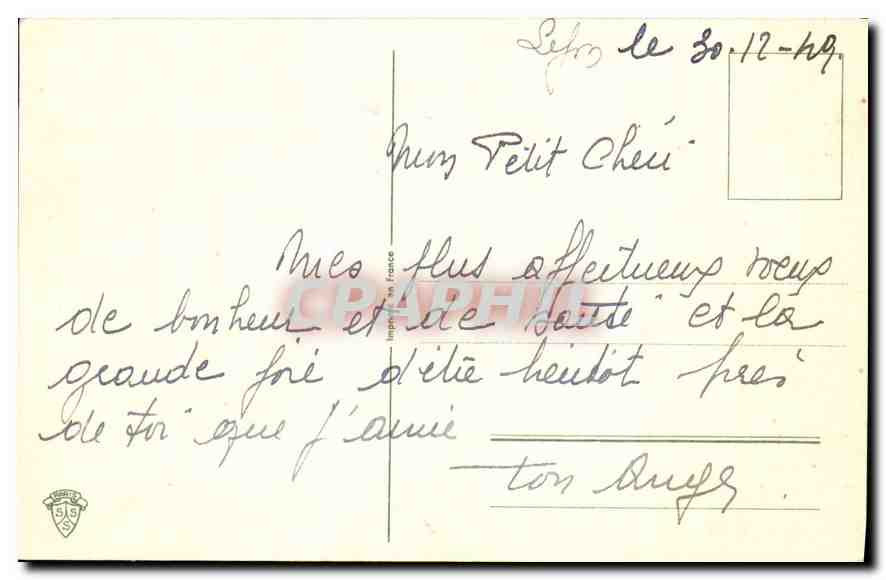 le 30-12-49.
Mon Petit Chéri
Mes plus affectueux voeux
de bonheur et de santé et la
grande joie d'être bientôt près
de toi que j'aime
ton Ange.
Imprimé en France
CPAPHIL
PARIS
S S S